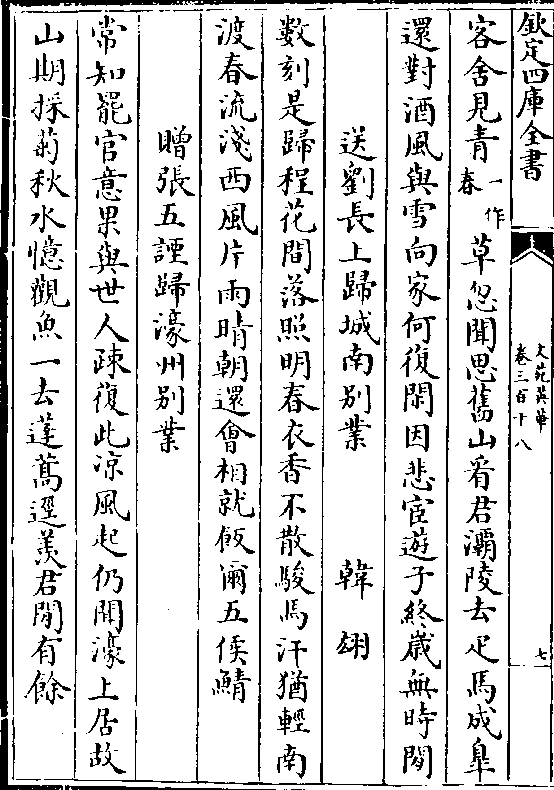 欽定四庫全書
文苑英華
卷三百十八
七
客舍見青一作春草忽聞思舊山看君灞陵去疋馬成臯
還對酒風與雪向家何復閑因悲宦遊子終歲無時閒
送劉長上歸城南別業　韓翃
數刻是歸程花間落照明春衣香不散駿馬汗猶輕南
渡春流淺西風片雨晴朝還會相就飯爾五侯鯖
贈張五諲歸濠州別業
常知罷官意果與世人疎復此凉風起仍聞濠上居故
山期採菊秋水憶觀魚一去蓬蒿逕羨君閒有餘